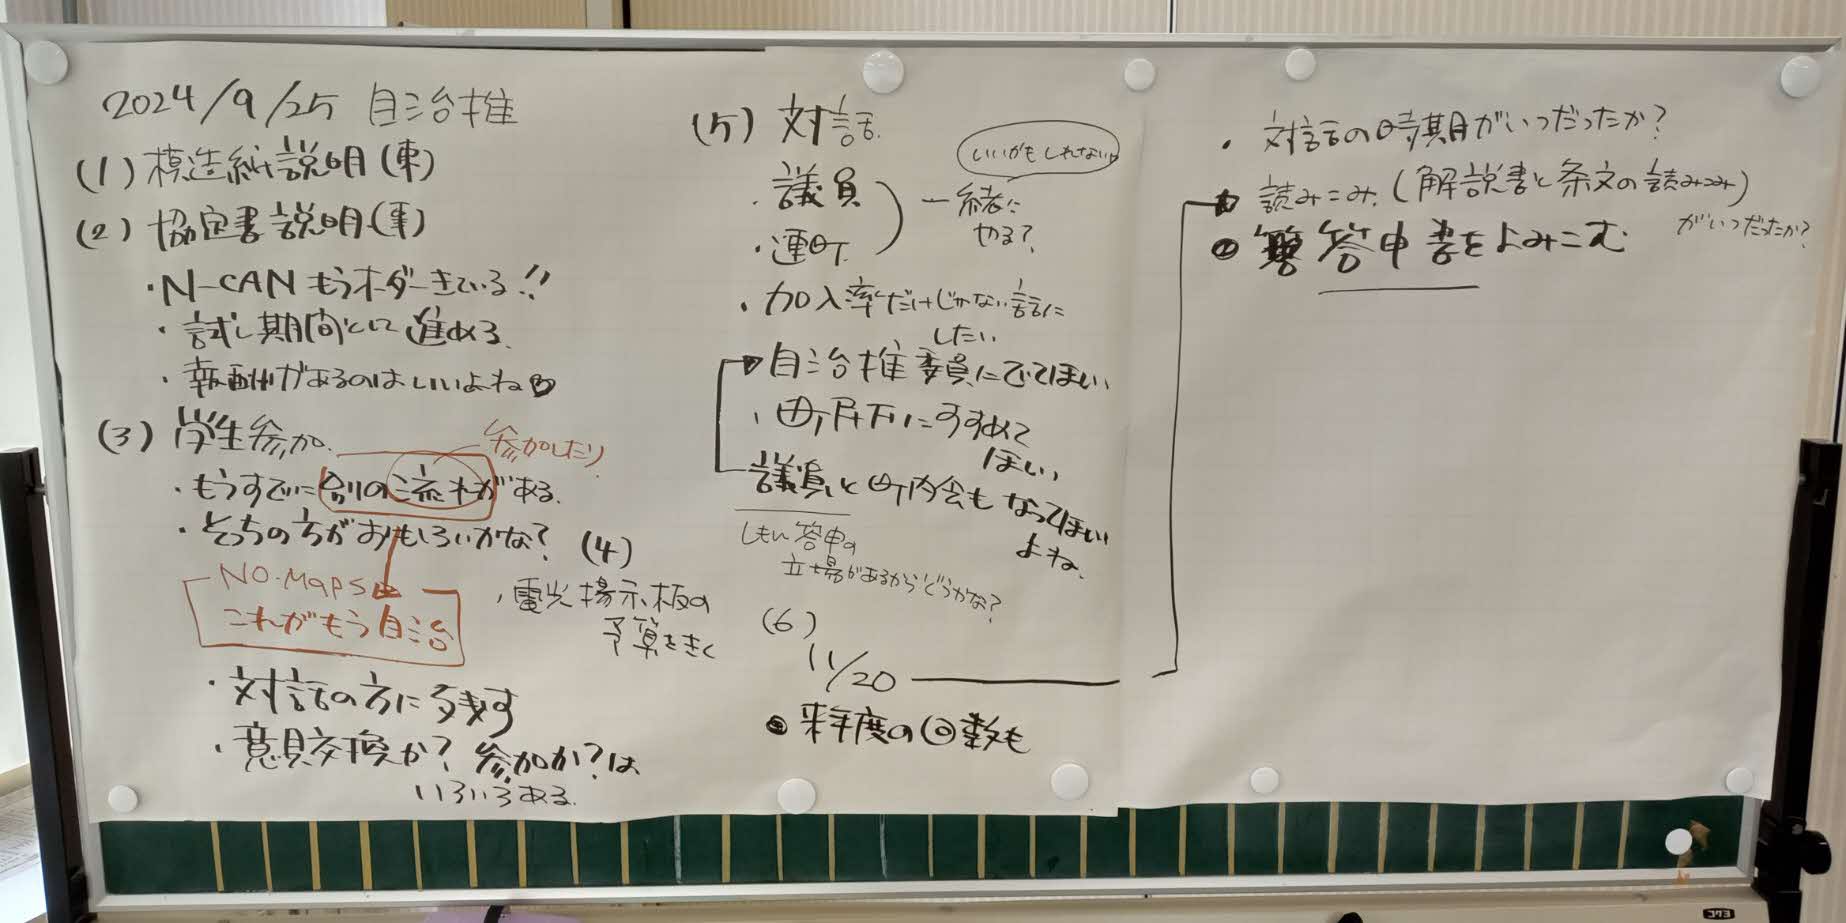 2024/9/25 自治推
(1) 模造紙説明(東)
(2) 協定書説明(事)
・N-CAN もうオーダーきている!!
・試し期間として進める.
・報酬があるのはいいよね
(3) 学生参加.
参加したり
・もうすでに別の流れがある.
・どっちの方がおもしろいかな?
NO.Maps
これがもう自治
・対話の方に残す
・意見交換か? 参加か?は
いろいろある.
(4)
・電光掲示板の
予算をきく
(5) 対話.
・議員
・連町.
一緒に
やる?
いいかもしれない
・加入率だけじゃない話に
したい
自治推委員にでてほしい
・町民万にすすめて
ほしい
議員と町内会もなってほしい
よね.
しもん答申の
立場があるからどうかな?
(6)
11/20
来年度の回数も
・対話の時期がいつだったか?
読みこみ.(解説書と条文の読みこみ)
がいつだったか?
答申書をよみこむ
コクヨ